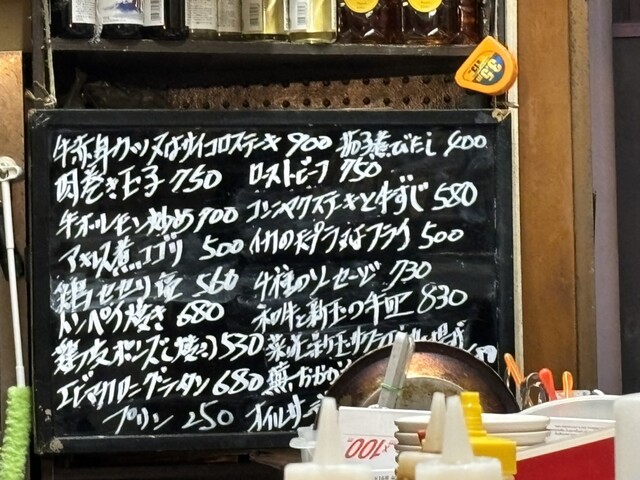 牛赤身カツ又はサイコロステーキ 900
茄子煮びたし 400
肉巻き玉子 750
ローストビーフ 750
牛ホルモン炒め 900
コンニャクステーキと牛すじ 580
アキレス煮コゴリ 500
イカの天プラ又はフライ 500
鶏セセリ塩 560
4種のソーセージ 730
トンペイ焼き 680
和牛と新玉の牛皿 830
鶏づり友ポンズ 530
エビマカロニグラタン 680
プリン 250
オイルサ
3.5m
100